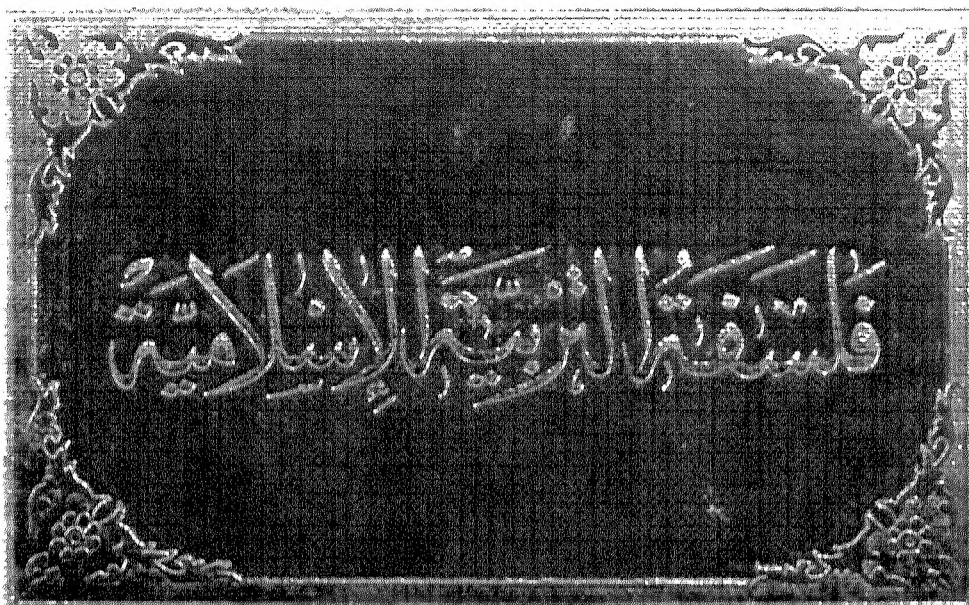 فَلْسَفَةُ التَّرْبِيَةِ الْإِسْلَامِيَّةِ